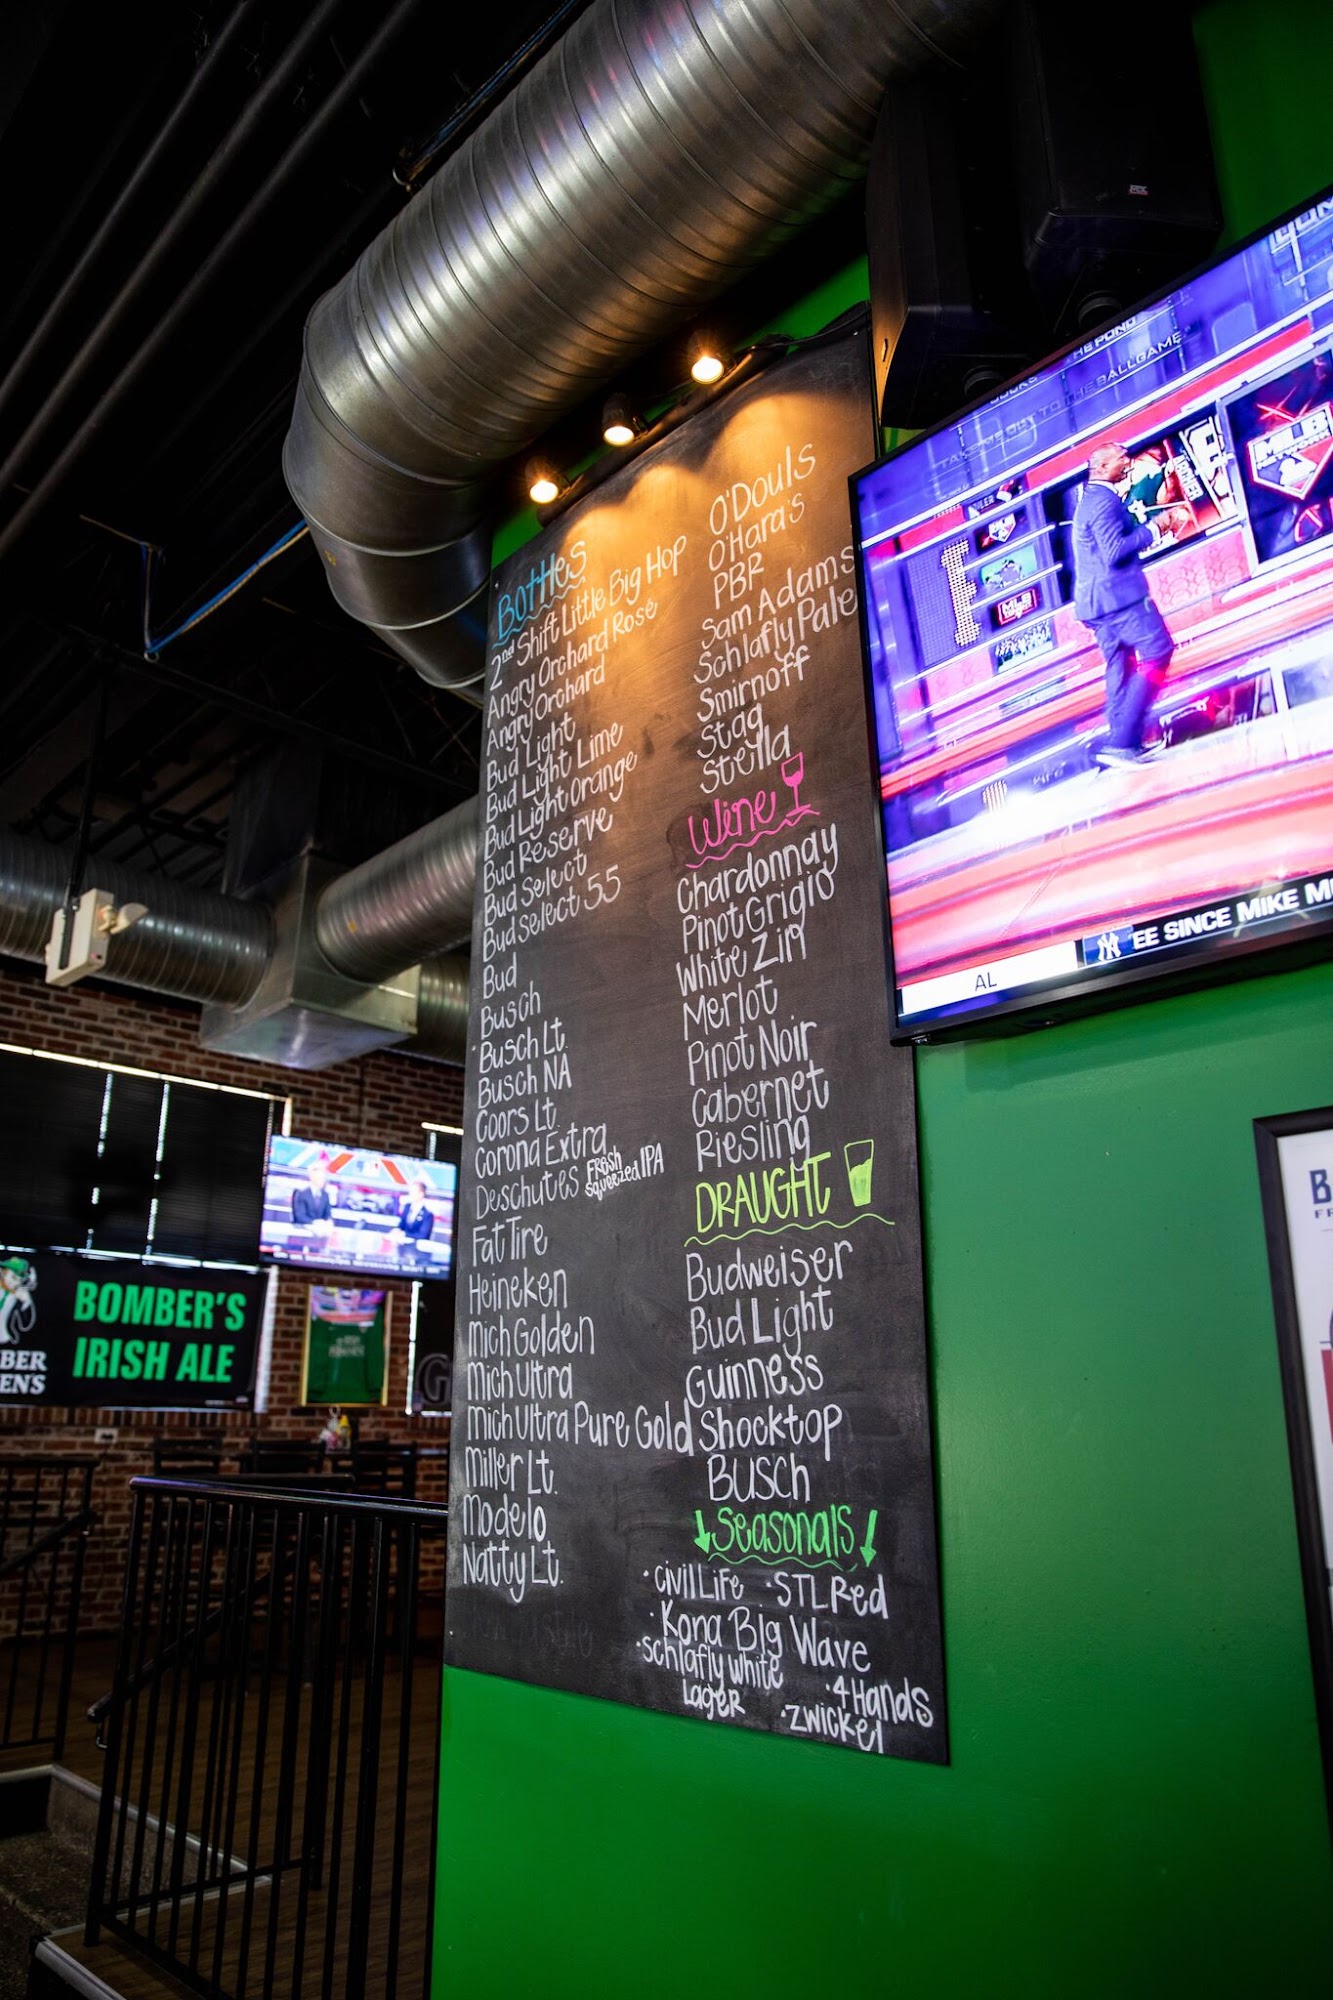 Bottles
2nd Shift Little Big Hop
Angry Orchard Rosé
Angry Orchard
Bud Light
Bud Light Lime
Bud Light Orange
Bud Reserve
Bud Select
Bud Select 55
Bud
Busch
Busch Lt.
Busch NA
Coors Lt.
Corona Extra
Deschutes Fresh Squeezed IPA
Fat Tire
Heineken
Mich Golden
Mich Ultra
Mich Ultra Pure Gold
Miller Lt.
Modelo
Natty Lt.
O'Douls
O'Hara's
PBR
Sam Adams
Schlafly Pale
Smirnoff
Stag
Stella
Wine
Chardonnay
Pinot Grigio
White Zin
Merlot
Pinot Noir
Cabernet
Riesling
DRAUGHT
Budweiser
Bud Light
Guinness
Shocktop
BUSCH
Seasonals
• Civil Life • STL Red
• Kona Big Wave
• Schlafly White
Lager
• 4 Hands
• Zwickel
THE POND
TAKE ME OUT TO THE BALLGAME
MLB
MLB
AL
EE SINCE MIKE M
BOMBER'S
IRISH ALE
BER
ENS
G
B
FR